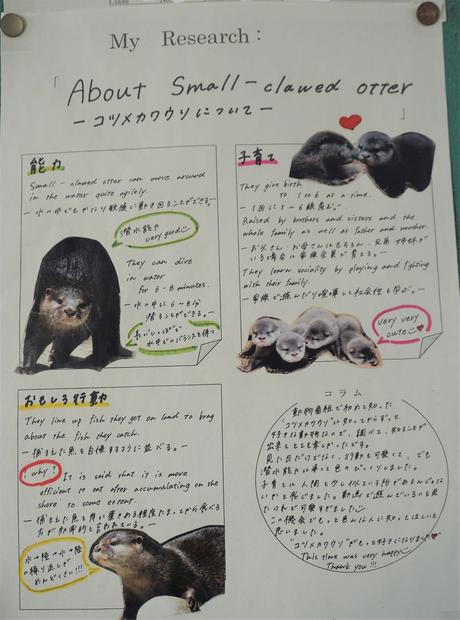 My Research:
「About Small-clawed otter
ーコツメカワウソについてー 」
能力
Small-clawed otter can move around
in the water quite agilely.
ー水の中でもかなり敏捷に動き回ることができるー
潜水能力
very good
They can dive
in water
for 6~8 minutes.
ー水の中に6~8分
潜ることができる。ー
長いしっぽで
水中でのバランスを保つ
子育て
They give birth
to 1 to 6 at a time.
ー1回に1~6頭産む。ー
Raised by brothers and sisters and the
whole family as well as father and mother
ーお父さん、お母さんはもちろん、兄弟姉妹が
いる場合は家族全員で育てる。ー
They learn sociality by playing and fighting
with their family.
ー家族で遊んだり喧嘩して社会性を学ぶ。ー
very very
cute
おもしろ行動
They line up fish they got on land to brag
about the fish they catch.
ー捕まえた魚を自慢するように並べる。ー
? why?
It is said that it is move
efficient to eat after accumulating on the
shore to some extent.
ー捕まえた魚を岸に置きある程度たまったから食べる
方が効率的と言われている。ー
水→陸→水→陸
の繰り返しが
めんどくさい!!!
コラム
動物番組で初めて知った
"コツメカワウソ"
好きな動物なので、調べて、知ることが
出来てとても楽しかったです。
見た目だけでなく、行動も可愛くて、でも
潜水能力は凄くて色々びっくりしました。
子育ては人間と少し似ている所があるんじゃ
ないかと思いました。動画で遊んでいるのを見た
だけで可愛すぎました
この機会でもっと色んな人に知ってほしいと
思いました。
"コツメカワウソ"がもっと好きになりました
This time was very happy
Thank you!!!